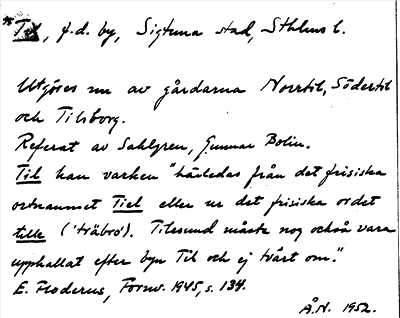 *Til, f.d. by, Sigtuna stad, Sthlms l.
Utgöres nu av gårdarna Norrtil, Södertil
och Tilsborg.
Referat av Sahlgren, Gunnar Bolin.
Til kan varken "härledas från det frisiska
ortnamnet Tiel eller ur det frisiska ordet
tille ('träbro'). Tilesund måste nog också vara
upphallat efter byn Til och ej tvärt om."
E. Floderus, Fornv. 1945, s. 134.
Å.N. 1952.